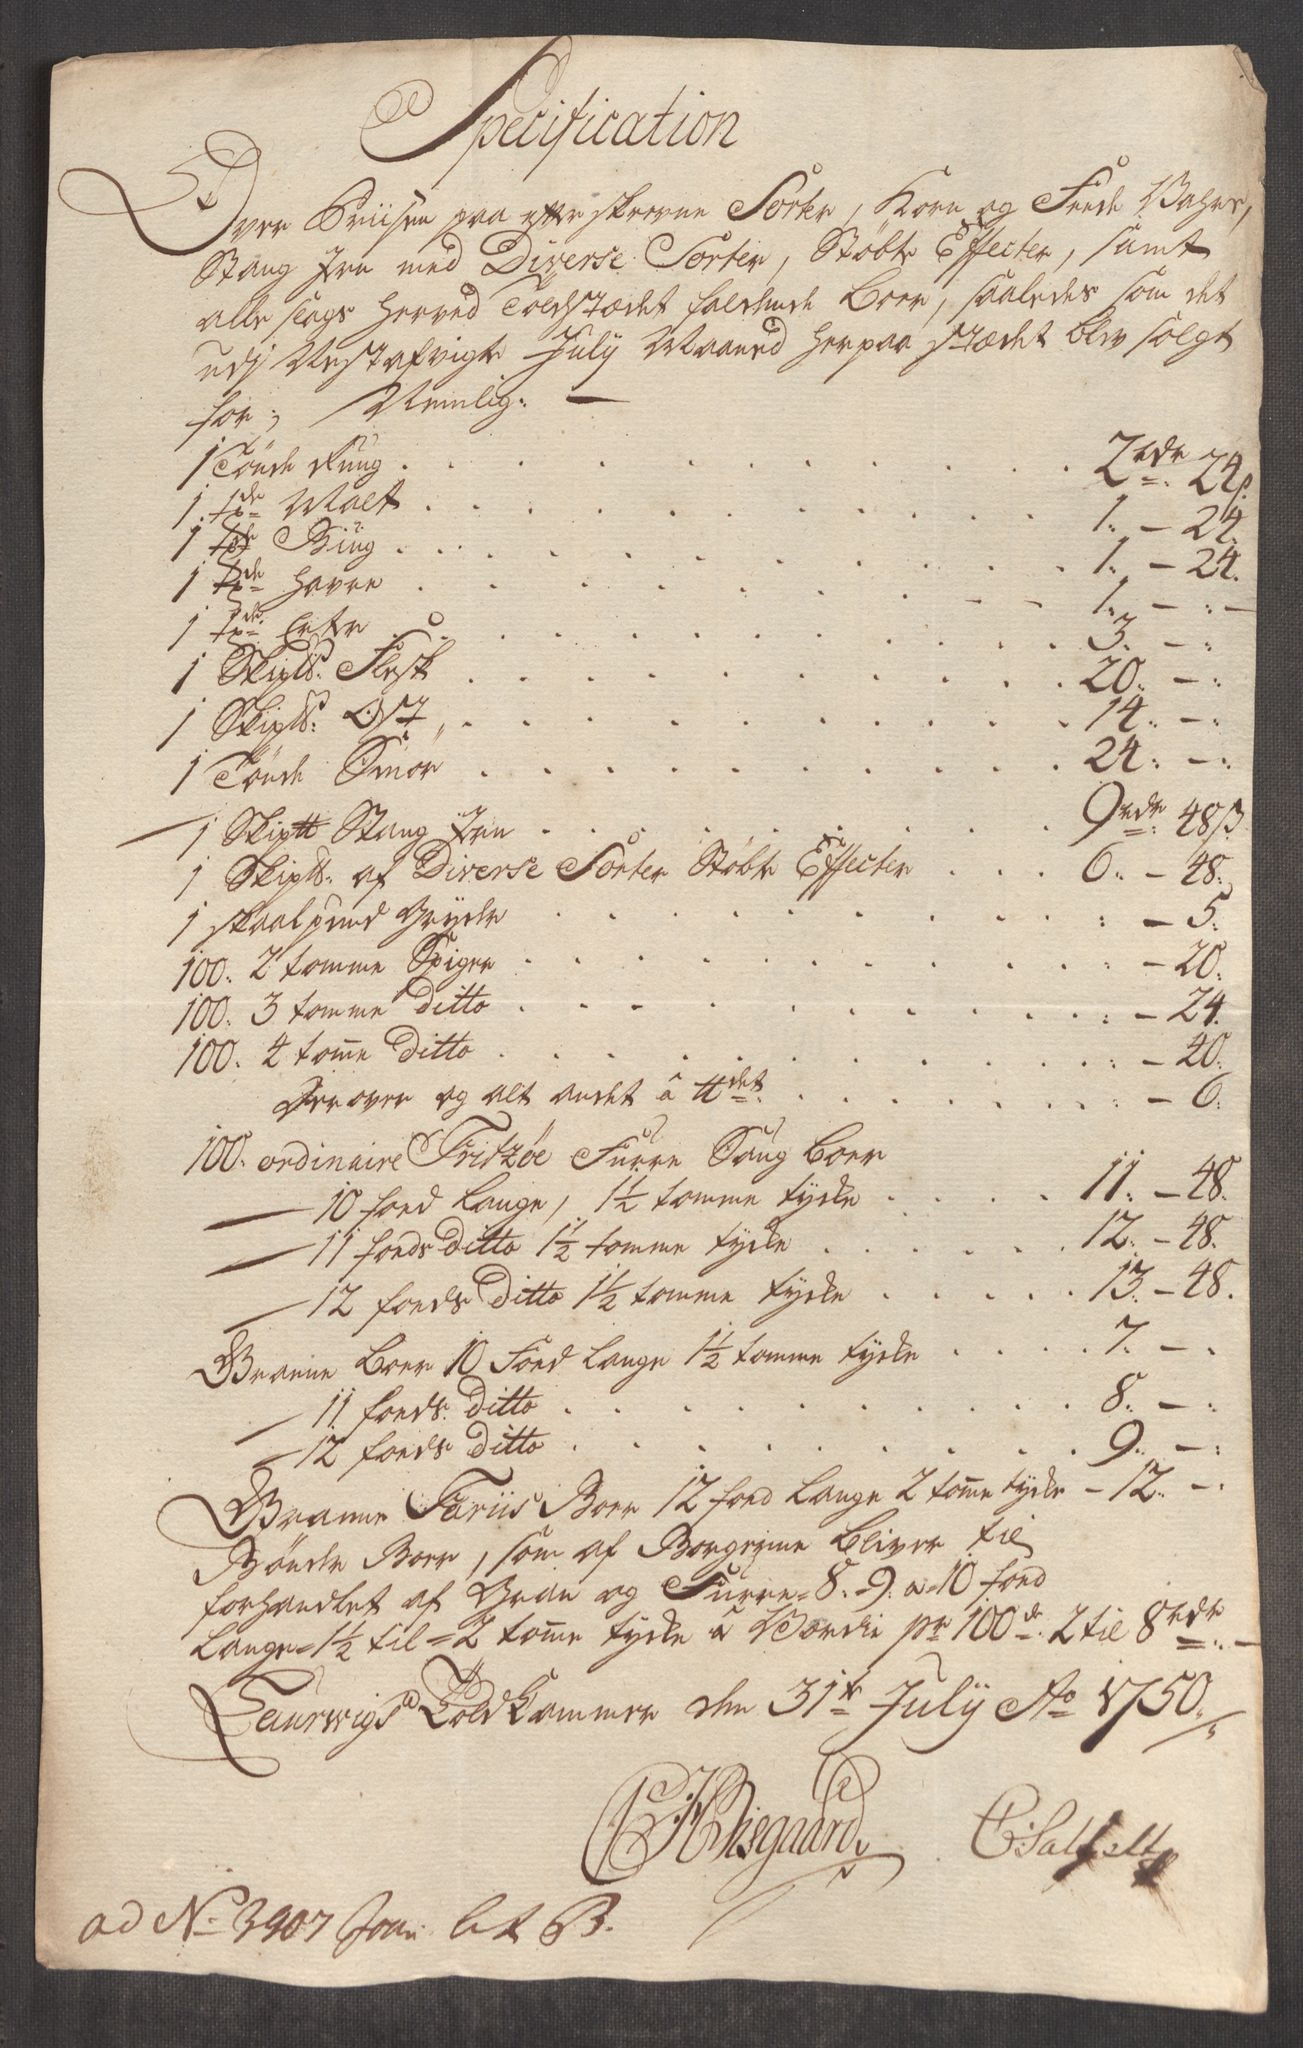 Specification
Over Priisen paa efterskrevne Sorter, Korn og Feede Vahre,
Stang Jern med Diverse Sorter, Støbte Effecter, samt
alle slags herved Toldstædet faldende Boer, saaledes som det
udj Nestafvigte July Maaned herpaa stædet blev solgt
for, Nemlig:
1 Tönde Rúug . . . 2 rdr 24 ß.
1 tde Malt . . . 1. - 24.
1 tde Biúg . . . 1. - 24.
1 tde Havre . . . 1. - : -
1 tde Erter . . . 3. - :
1 Skip℔. Flesk . . . 20. - :
1 Skip℔. Ost . . . 14. - :
1 Tönde Smör . . . 24. - :
1 Skip℔ Stang Jern . . . 9 rdr 48 ß.
1 Skip℔. af Diverse Sorter Støbte Effecter . . . 6. - 48.
1 skaalpund Gryder . . . : - 5.
100. 2 tomme Spiger . . . : - 20.
100. 3 tomme ditto . . . : - 24.
100. 4 tome ditto . . . : - 40.
Derover og alt andet â ℔det . . . : - 6.
100. ordinaire Fritzøe Furre Saug Boer
10 foed Lange, 1½ tomme tycke . . . 11. - 48.
11 foeds ditto 1½ tomme tycke . . . 12. - 48.
12 foeds ditto 1½ tomme tycke . . . 13. - 48.
Graene Boer 10 Foed Lange 1½ tomme tycke . . . 7. - :
11 foeds ditto . . . 8. - :
12 foeds ditto . . . 9. - :
Granne Tariis Boer 12 foed Lange 2 tome tycke - 12. - :
Bönder Boer, som af Borgerne bliver til
forhandlet af Gran og Furre = 8. 9. a 10 foed
Lange = 1½ til = 2 tome tycke â Værdie pr 100de. 2 til 8 rdr : -
Laurwigs Toldkammer den 31te July Ao 1750.
Wisgaard C: Saltfelt
ad No 3907 Joun: Lit B.